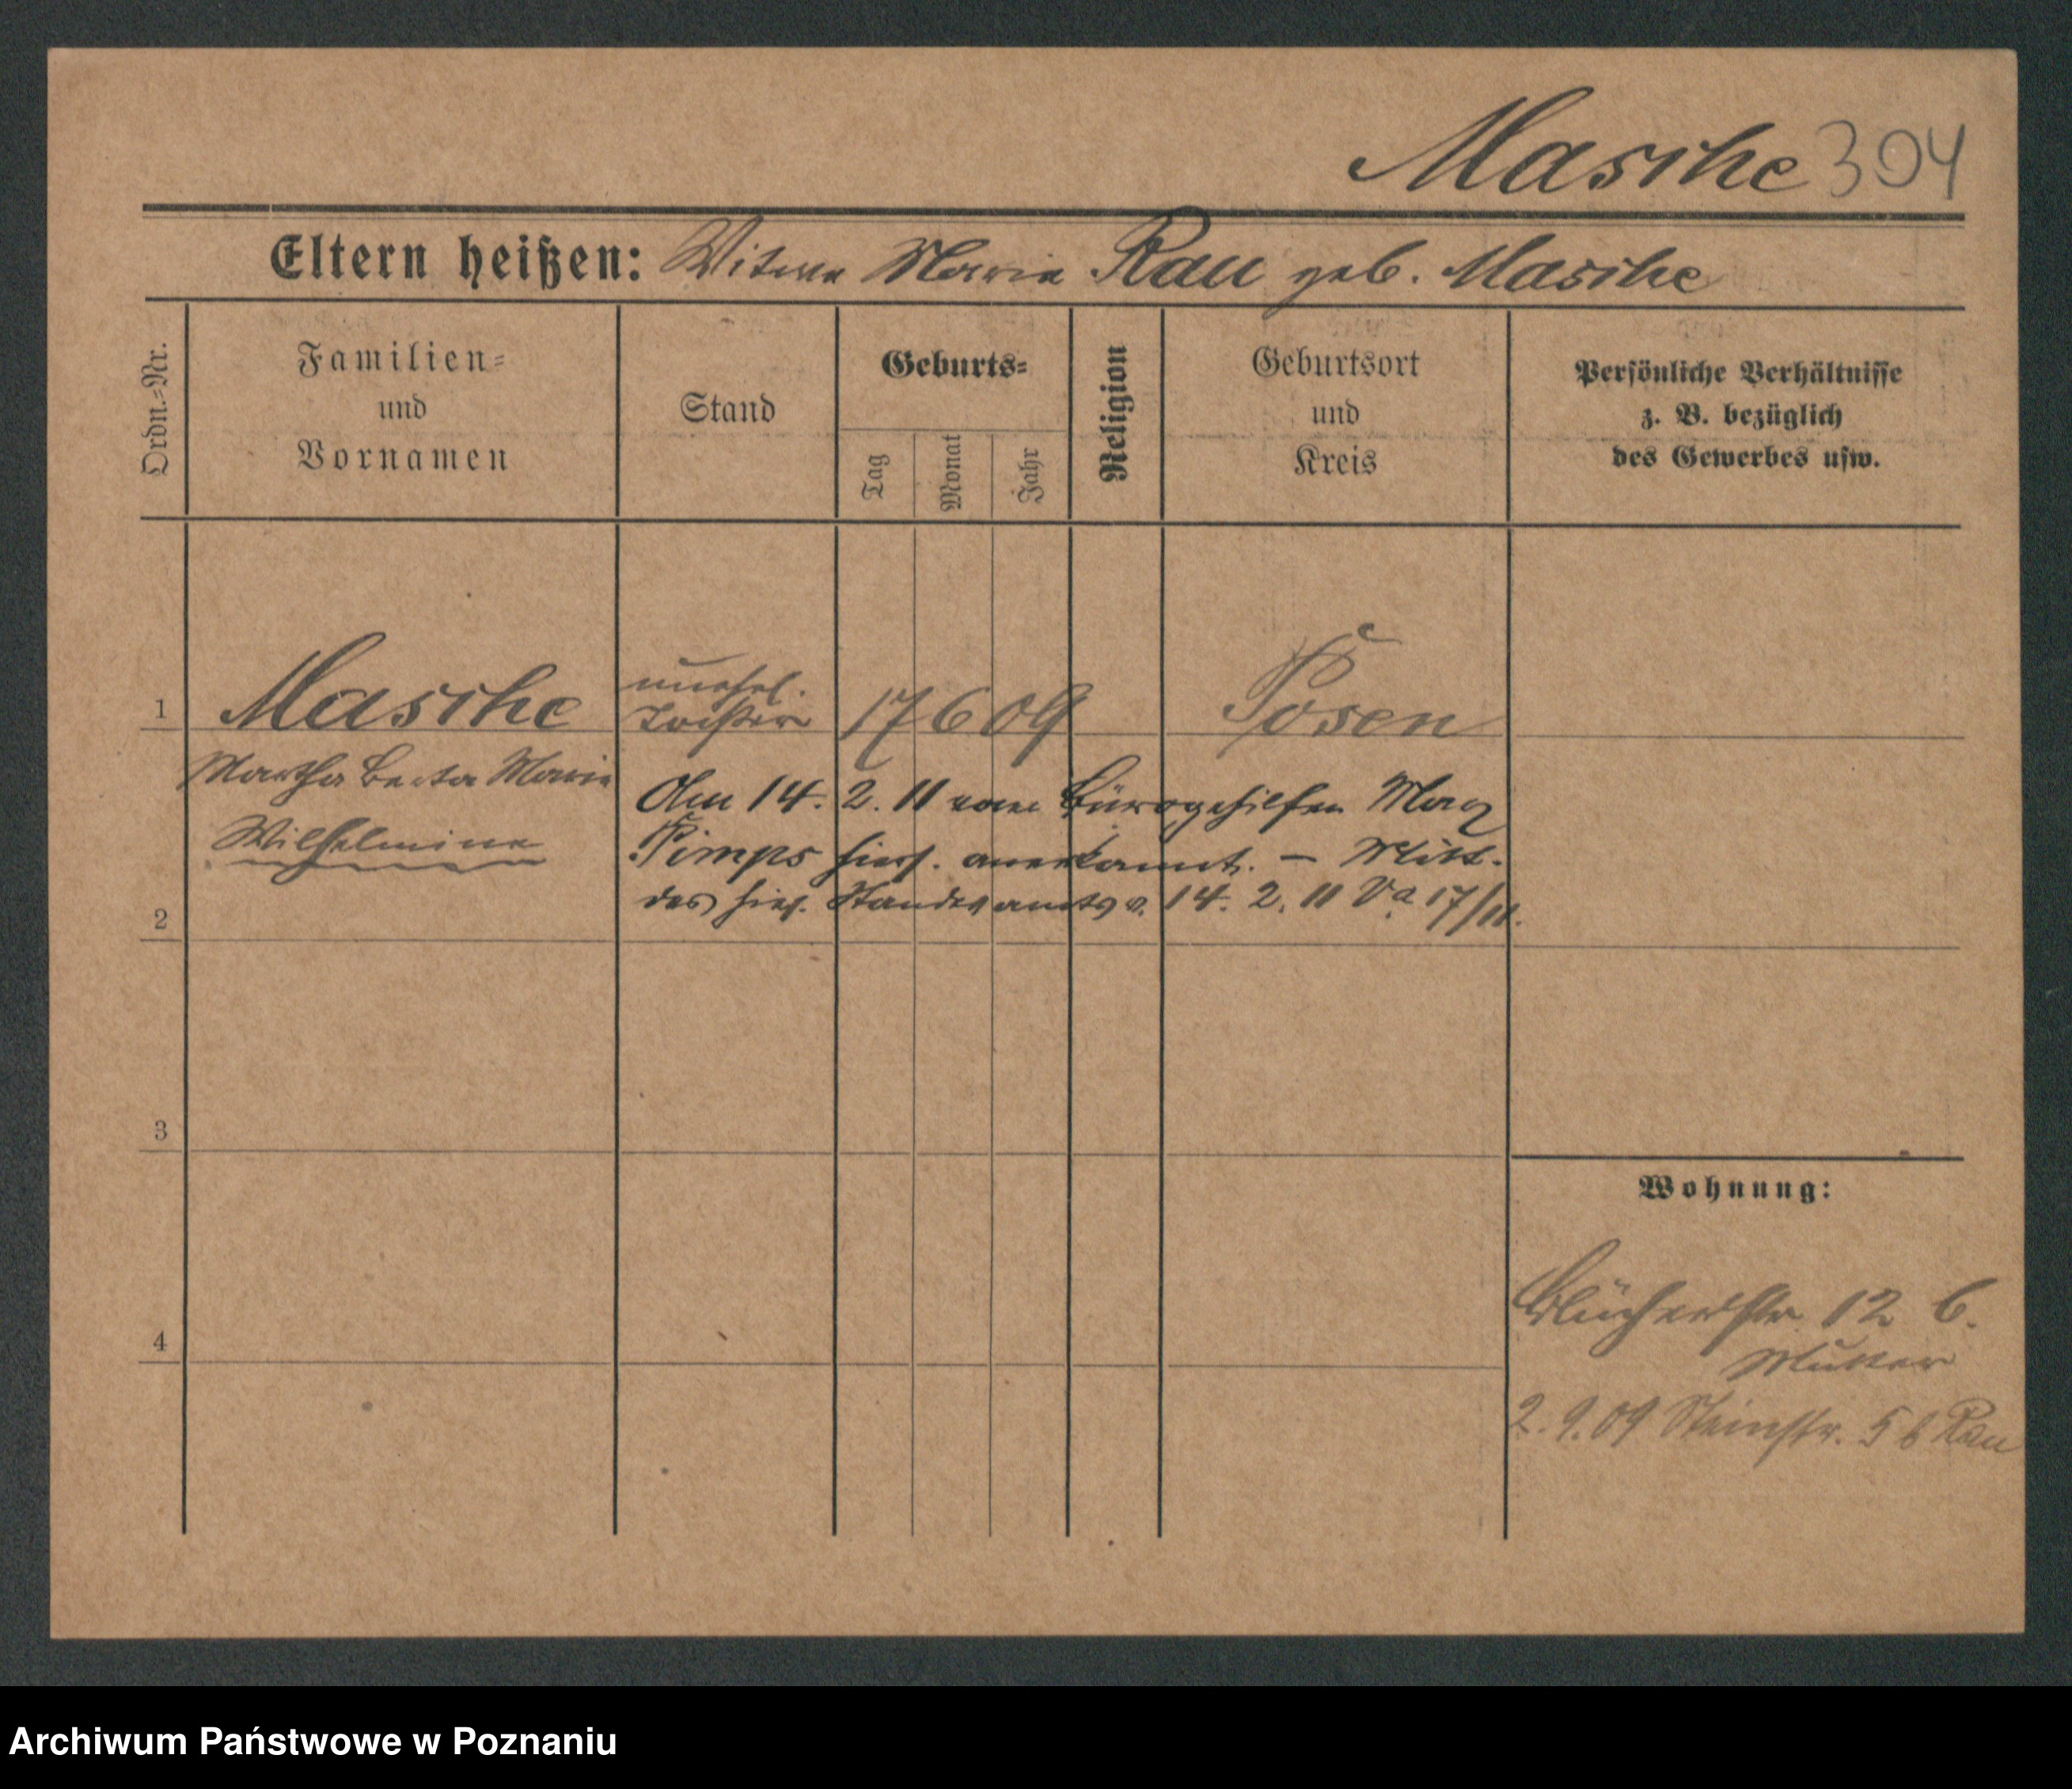 Masche 304
Eltern heißen: Witwe Marie Rau geb. Masche
Ordn.-Nr.
Familien-
und
Vornamen
Stand
Geburts-
Tag
Monat
Jahr
Religion
Geburtsort
und
Kreis
Persönliche Verhältnisse
z. B. bezüglich
des Gewerbes usw.
unehel.
1 Masche Tochter 17 6 09 Posen
Martha Berta Marie
Wilhelmine
Am 14. 2. 11 vom Bürogehilfen Max
Pimps hiers. anerkannt. – Mitt.
des hies. Standesamts v. 14. 2. 11 Va 17/11.
2
3
Wohnung:
Blücherstr 12 b.
4
Mutter
2.9.09 Steinstr. 5 b Rau
Archiwum Państwowe w Poznaniu